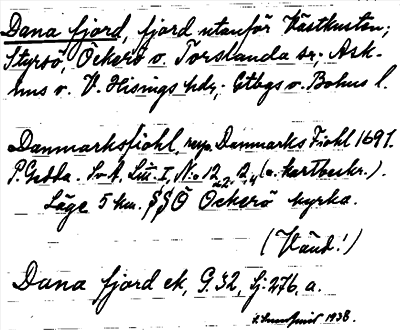 Dana fjord, fjord utanför Västkusten;
Styrsö, Öckerö o. Torslanda sr; Ask-
ims o. V. Hisings hdr; Gtbgs o. Bohus l.
Danmarksfiohl, resp. Danmarks Fiohl 1691.
P. Gedda. SvA, Litt. I, N:o 12, 2, (o. kartbeskr.).
Läge 5 km. SSÖ Öckerö kyrka.
(Vänd!)
Dana fjord ek, G.32, Lj:276, a.
1938.